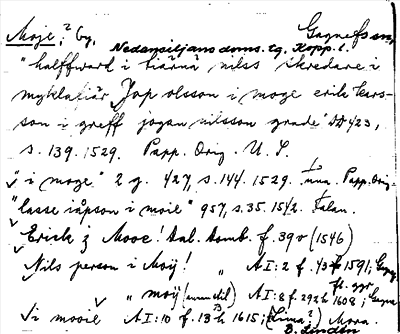 Moje, ? by, Gagnefs sn,
Nedansiljans doms. tg. Kopp. l.
"halffward i tiärnä nilss skredare i
myklabiär Jop olsson i moge erik lars-
son i greff jogan nilsson grade" DD 423,
s. 139. 1529. Papp. Orig. U. S.
"i moge" 2 g. 427, s. 144. 1529. Papp. Orig.
"lasse iåpson i moie" 957, s. 35. 1542. Falan.
Erick j Mooe! Dal. tomb. f. 39v (1546)
Nils person i Moij! " AI:2 f. 43 1591; Gagn
" moij AI:8 f. 292 1608; Gagne
"i mooie AI:10 f. 13 1615; (Lima?) Mora.
B. Lindén